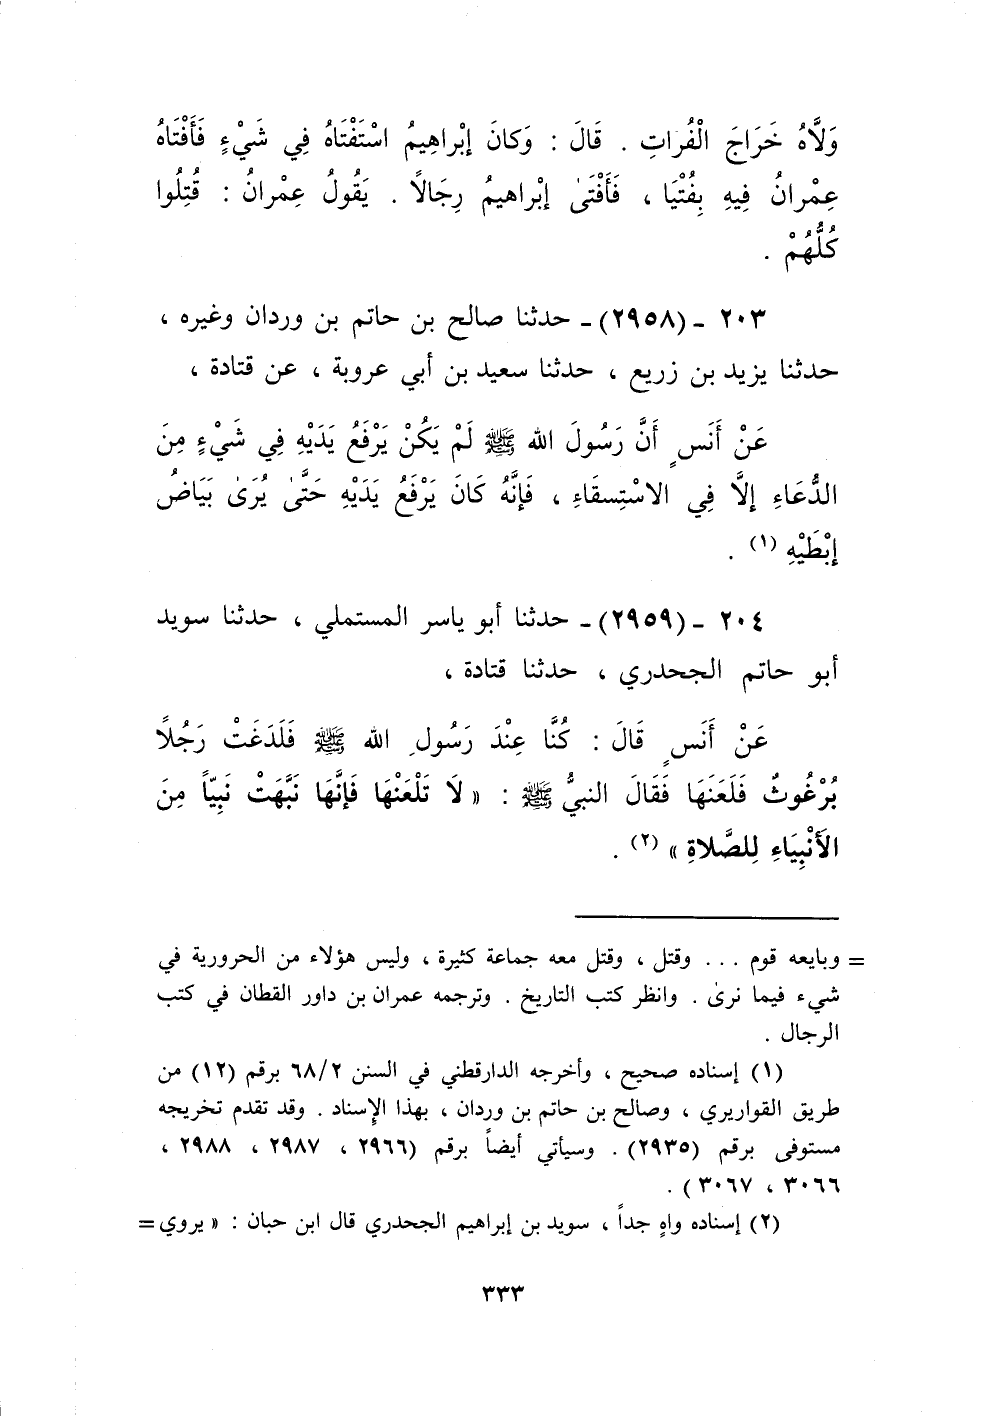 وَلاَّهُ خَرَاجَ الْفُرَاتِ . قَالَ : وَكانَ إبْراهِيمُ اسْتَفْتَاهُ فِي شَيْءٍ فَأَفْتَاهُ
عِمْرانُ فِيهِ بِفُتْيَا ، فَأَفْتىٰ إبْراهيمُ رِجَالاً . يَقُولُ عِمْرانُ : قُتِلُوا
كُلُّهُمْ .
٢٠٣ ـ (٢٩٥٨) ـ حدثنا صالح بن حاتم بن وردان وغيره ،
حدثنا يزيد بن زريع ، حدثنا سعيد بن أبي عروبة ، عن قتادة ،
عَنْ أَنَسٍ أَنَّ رَسُولَ الله ﷺ لَمْ يَكُنْ يَرْفَعُ يَدَيْهِ فِي شَيْءٍ مِنَ
الدُّعَاءِ إلَّا فِي الاسْتِسقَاءِ ، فَإنَّهُ كَانَ يَرْفَعُ يَدَيْهِ حَتَّىٰ يُرَىٰ بَيَاضُ
إبْطَيْهِ (١) .
٢٠٤ ـ (٢٩٥٩) ـ حدثنا أبو ياسر المستملي ، حدثنا سويد
أبو حاتم الجحدري ، حدثنا قتادة ،
عَنْ أَنَسٍ قَالَ : كُنَّا عِنْدَ رَسُولِ الله ﷺ فَلَدَغَتْ رَجُلًا
بُرْغُوثٌ فَلَعَنَهَا فَقَالَ النبيُّ ﷺ : « لَا تَلْعَنْهَا فَإنَّهَا نَبَّهَتْ نَبِيّاً مِنَ
الأَنْبِيَاءِ لِلصَّلاةِ » (٢) .
= وبايعه قوم ... وقتل ، وقتل معه جماعة كثيرة ، وليس هؤلاء من الحرورية في
شيء فيما نرىٰ . وانظر كتب التاريخ . وترجمه عمران بن داور القطان في كتب
الرجال .
(١) إسناده صحيح ، وأخرجه الدارقطني في السنن ٦٨/٢ برقم (١٢) من
طريق القواريري ، وصالح بن حاتم بن وردان ، بهذا الإسناد . وقد تقدم تخريجه
مستوفى برقم (٢٩٣٥) . وسيأتي أيضاً برقم (٢٩٦٦ ، ٢٩٨٧ ، ٢٩٨٨ ،
٣٠٦٦ ، ٣٠٦٧ ) .
(٢) إسناده واهٍ جداً ، سويد بن إبراهيم الجحدري قال ابن حبان : « يروي =
٣٣٣